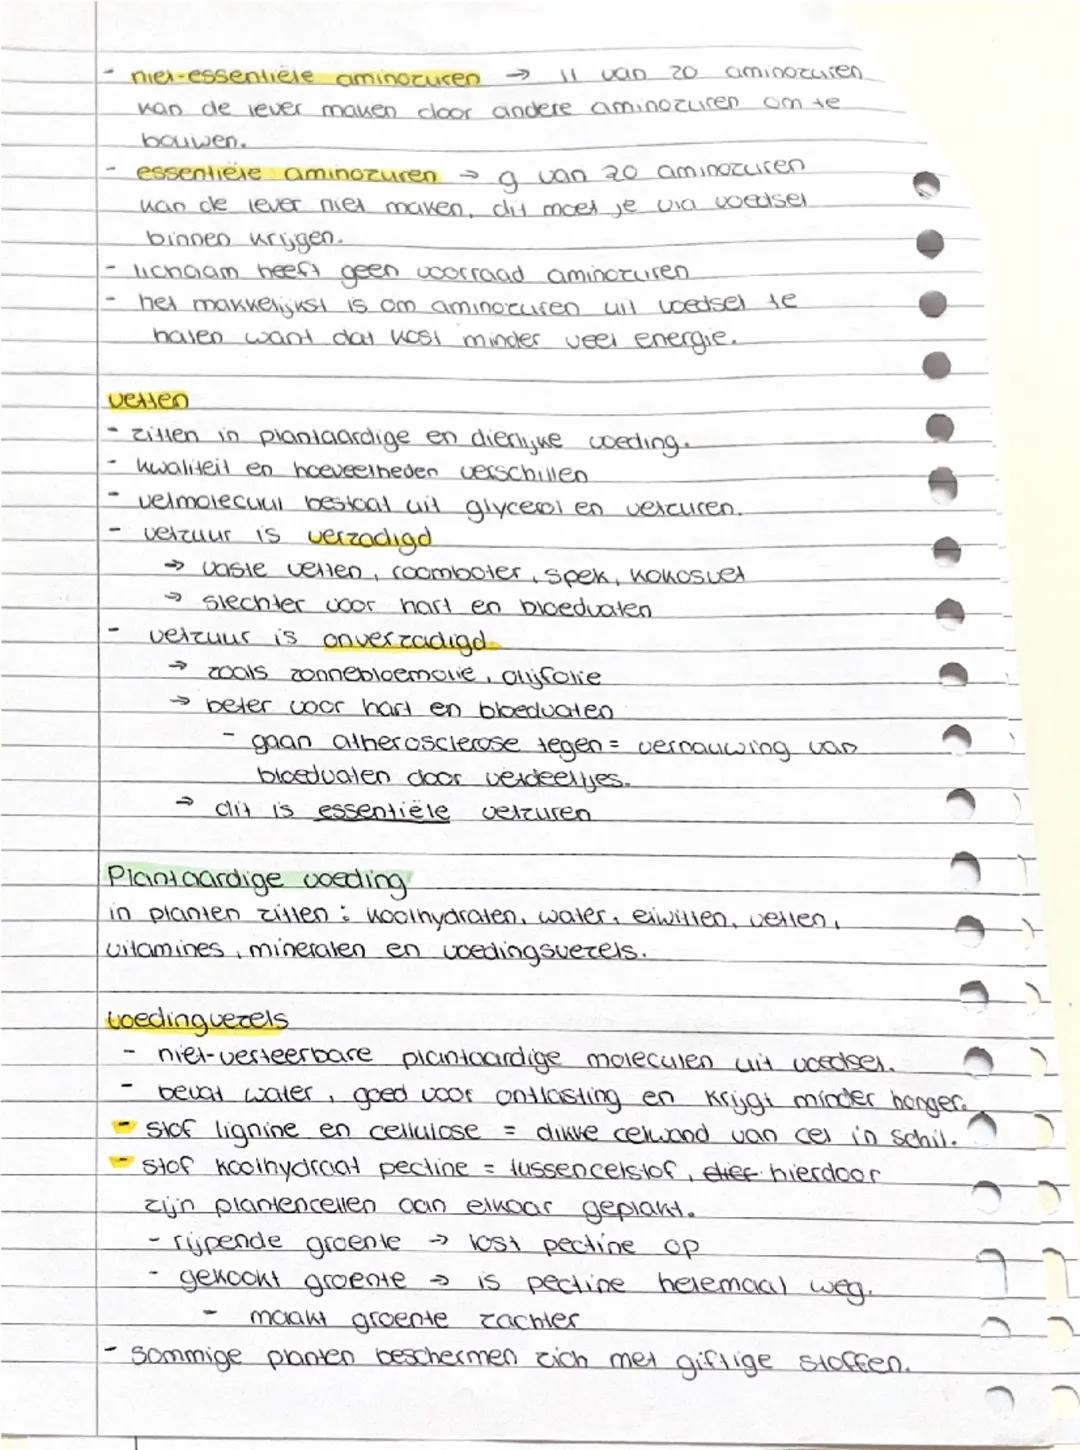 - niet-essentiële aminozuren → 11 van 20 aminozuren
kan de lever maken door andere aminozuren om te
bouwen.
- essentiële aminozuren → 9 van 20 aminozuren
kan de lever niet maken, dit moet je via voedsel
binnen krijgen.
- lichaam heeft geen voorraad aminozuren
- het makkelijkst is om aminozuren uit voedsel te
halen want dat kost minder veel energie.
vetten
- zitten in plantaardige en dierlijke voeding.
- kwaliteit en hoeveelheden verschillen
- vetmolecuul bestaat uit glycerol en vetzuren.
- vetzuur is verzadigd
→ vaste vetten, roomboter, spek, kokosvet
→ slechter voor hart en bloedvaten
- vetzuur is onverzadigd.
→ zoals zonnebloemolie, olijfolie
→ beter voor hart en bloedvaten
- gaan atherosclerose tegen = vernauwing van
bloedvaten door vetdeeltjes.
→ dit is essentiële vetzuren
Plantaardige voeding
in planten zitten: koolhydraten, water, eiwitten, vetten,
vitamines, mineralen en voedingsvezels.
voedingvezels
- niet-verteerbare plantaardige moleculen uit voedsel.
- bevat water, goed voor ontlasting en krijgt minder honger.
- stof lignine en cellulose = dikke celwand van cel in schil.
- stof koolhydraat pectine = tussencelstof, hierdoor
zijn plantencellen aan elkaar geplakt.
- rijpende groente → lost pectine op
- gekookt groente → is pectine helemaal weg.
- maakt groente zachter
- Sommige planten beschermen zich met giftige stoffen.